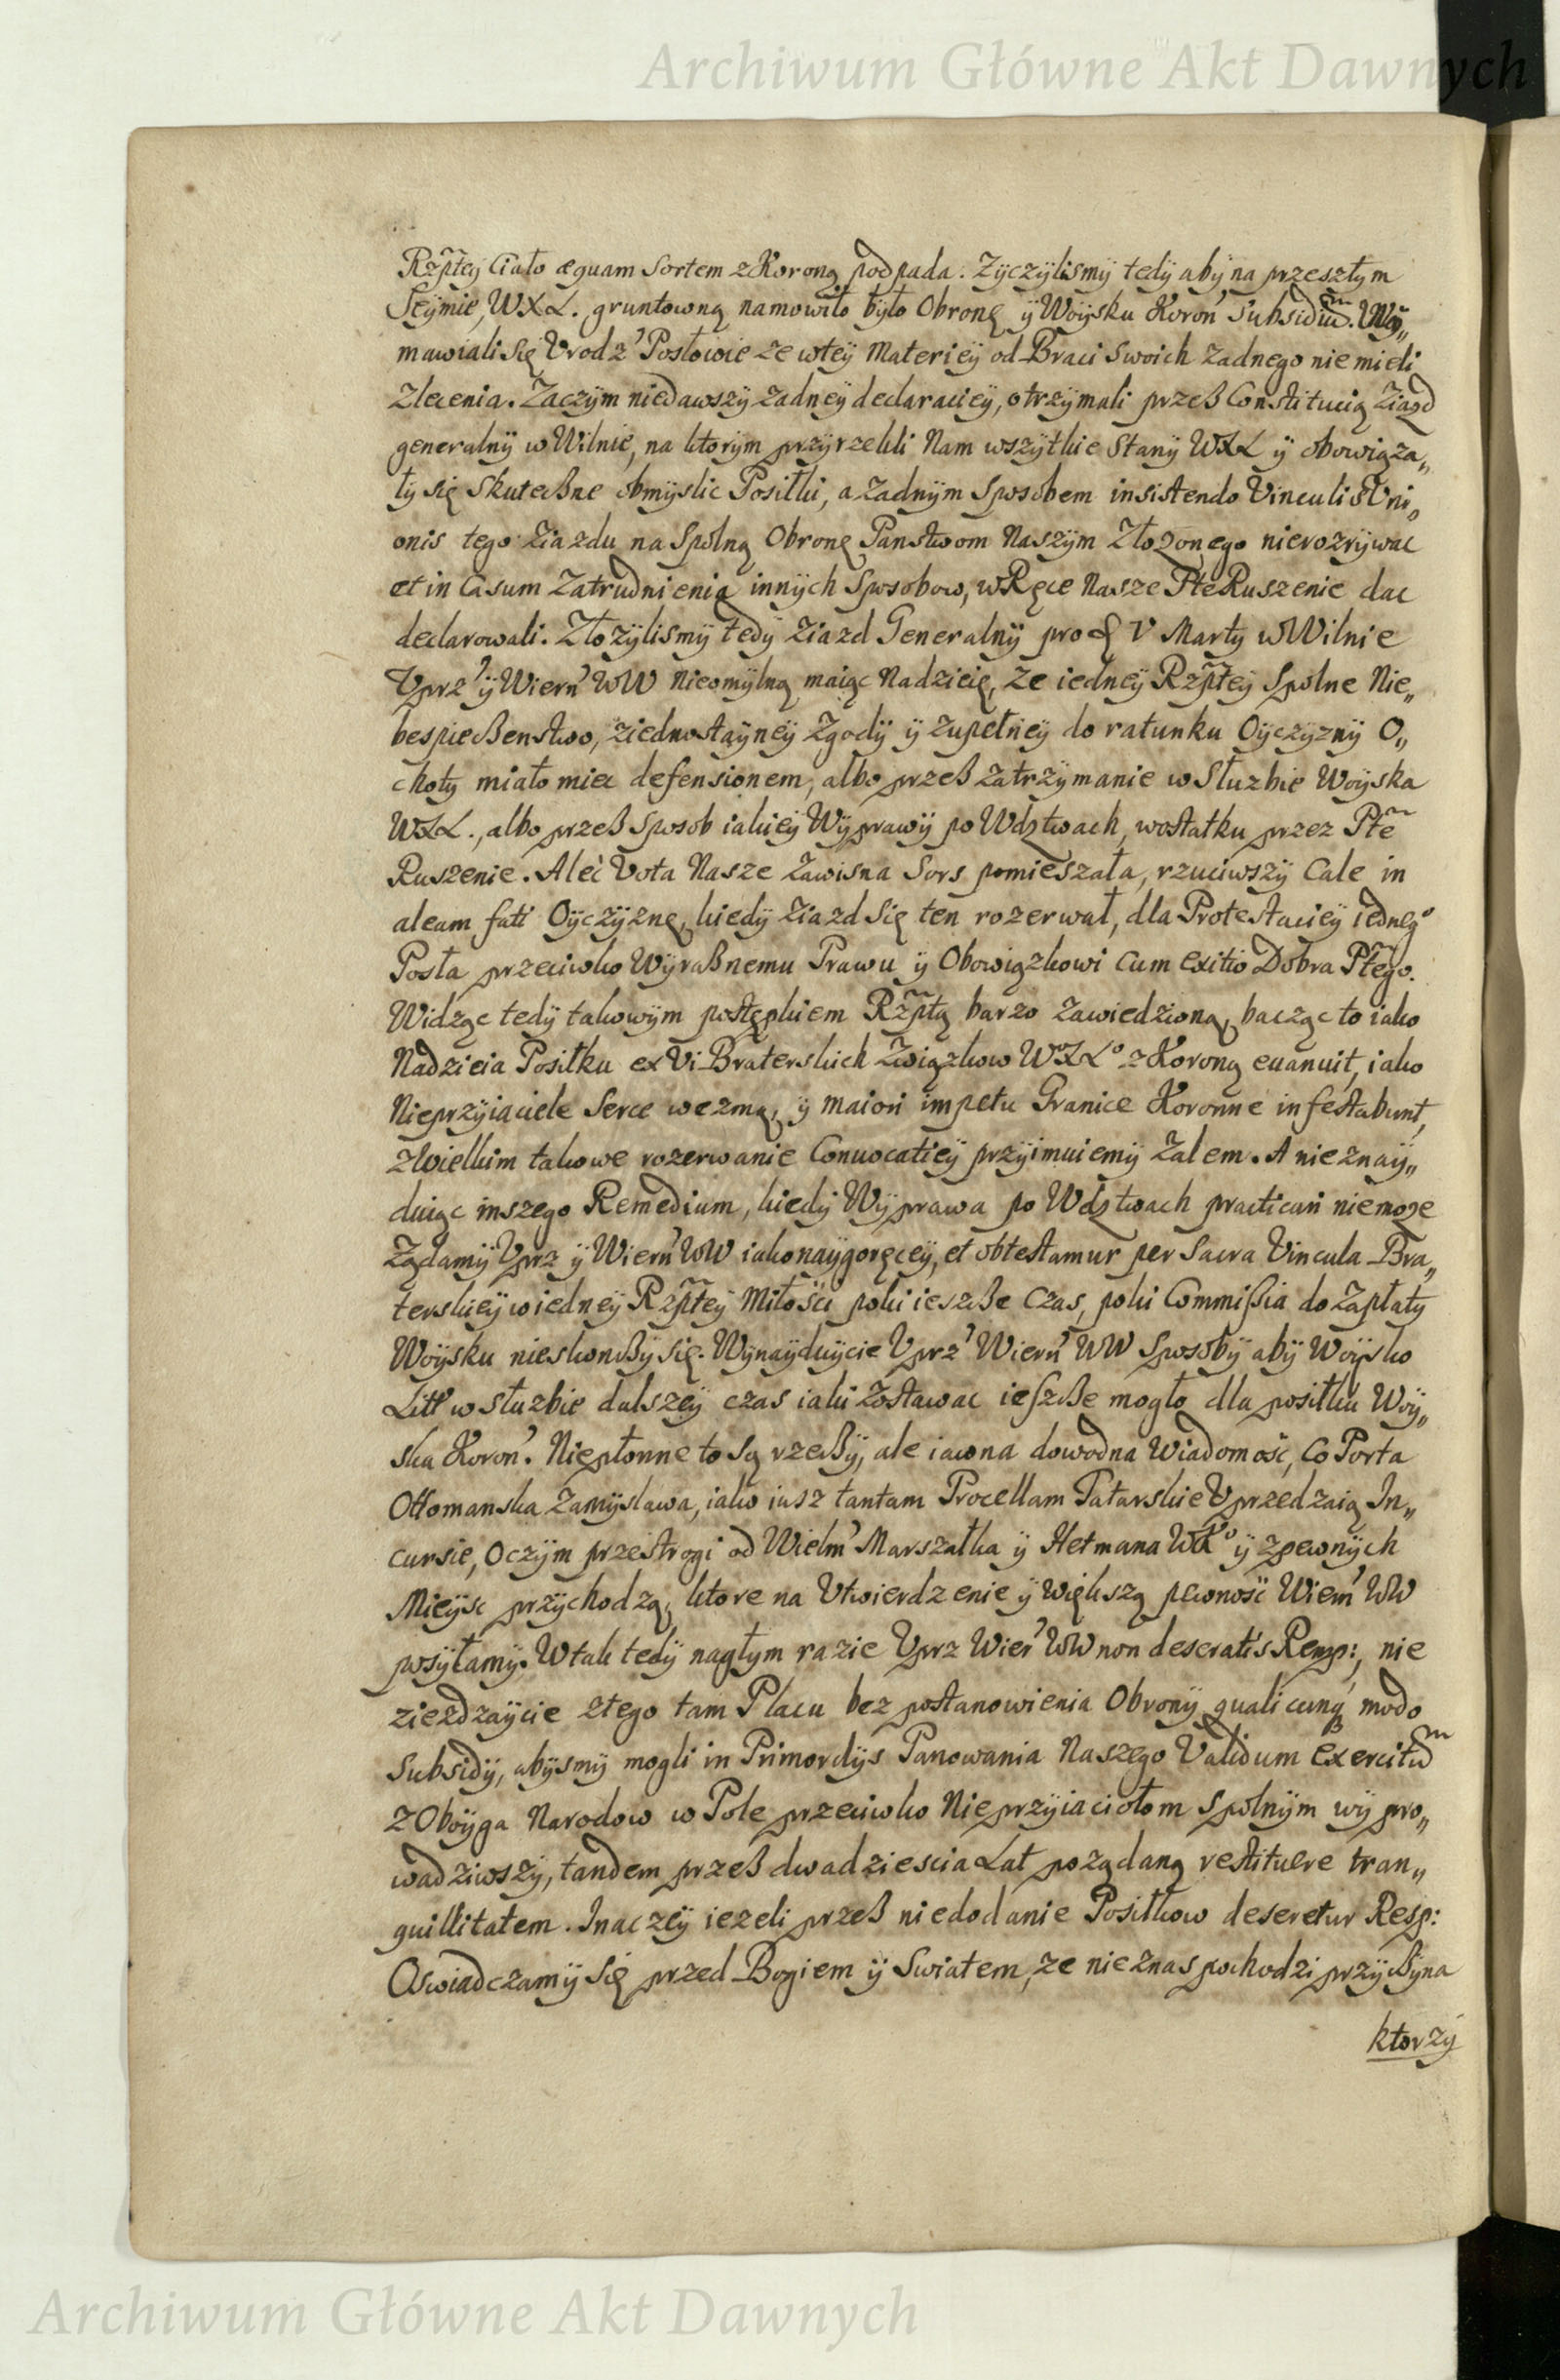 Archiwum Główne Akt Dawnych
Rzpłtey Ciało æquam Sortem z Koroną podpada. Zÿczÿlismÿ tedÿ abÿ na przeszłym
Seÿmie, WXL. gruntowną namowiło było Obronę ÿ Woÿsku Koron' Subsidiũ. Wÿ„
mawiali się Vrodz' Posłowie ze wteÿ Materieÿ od Braci Swoich zadnego nie mieli
Zlecenia. Zaczÿm niedawszÿ zadneÿ declaracieÿ, otrzÿmali przeß Constitucią Ziazd
generalnÿ w Wilnie, na ktorÿm przÿrzekli Nam wszÿtkie Stanÿ WXL ÿ obowiąza„
łÿ się Skuteczne obmÿslic Posiłki, a zadnÿm Sposobem insistendo Vinculis Vni„
onis tego Ziazdu na Spolną Obronę Panstwom Naszÿm Złozonego nierozrÿwac
et in Casum Zatrudnienia innÿch Sposobow, w Ręce Nasze Płte Ruszenie dac
declarowali. Złozÿlismÿ tedÿ Ziazd Generalnÿ pro V Marty w Wilnie
Vprz' ÿ Wiern' WW nieomÿlną maiąc Nadzieię, ze iedneÿ Rzpłteÿ Spolne Nie„
bespieczenstwo, ziednostaÿneÿ Zgodÿ ÿ zupełneÿ do ratunku Oÿczÿznÿ O„
chotÿ miało miec defensionem, albo przeß zatrzÿmanie w Słuzbie Woÿska
WXL., albo przeß Sposob iakieÿ Wÿprawÿ po Wdztwach, wostatku przez Płte
Ruszenie. Aleć Vota Nasze Zawisna Sors pomieszała, rzuciwszÿ Cale in
aleam fati Oÿczÿznę, kiedÿ Ziazd Się ten rozerwał, dla Protestacieÿ iedneg°
Posła przeciwko Wÿraßnemu Prawu ÿ Obowiązkowi cum exitio Dobra Płtego.
Widząc tedÿ takowÿm postępkiem Rzpłtą barzo zawiedzioną, bacząc to iako
Nadzieia Posiłku ex Vi Braterskich Związkow WXL° z Koroną euanuit, iako
Nieprzÿiaciele Serce wezmą, ÿ maiori impetu Granice Koronne infestabunt,
z wielkim takowe rozerwanie Conuocatieÿ przÿimuiemÿ Zalem. A nieznaÿ„
duiąc inszego Remedium, kiedÿ Wÿprawa po Wdztwach practicari niemoze
Ządamÿ Vprz ÿ Wiern' WW iakonaÿgoręceÿ, et obtestamur per Sacra Vincula Bra„
terskieÿ w iedneÿ Rzpłteÿ Miłości poki ieszcze Czas, poki Commißia do Zapłatÿ
Woÿsku nieskonczÿ się. Wÿnaÿduÿcie Vprz' Wiern' WW Sposobÿ abÿ Woÿsko
Litt w słuzbie dalszeÿ czas iaki zostawac ieszcze mogło dla posiłku Woÿ„
ska Koron'. Niepłonne to są rzeczÿ, ale iawna dowodna Wiadomość, Co Porta
Ottomanska Zamÿslawa, iako iusz tantam Procellam Tatarskie Vprzedzaią In„
cursie, Oczÿm przestrogi od Wielm' Marszałka ÿ Hetmana WK° ÿ zpewnÿch
Mieÿsc przÿchodzą, ktore na Vtwierdzenie ÿ większą pewność Wiern' WW
posÿłamÿ. W tak tedÿ nagłÿm razie Vprz Wier' WW non deseratis Remp:, nie
ziezdzaÿcie ztego tam Placu bez postanowienia Obronÿ qualicunq modo
Subsidÿ, abÿsmÿ mogli in Primordÿs Panowania Naszego Validum Exercitũ
z Oboÿga Narodow w Pole przeciwko Nieprzÿiaciołom Spolnÿm wÿpro„
wadziwszÿ, tandem przeß dwadziescia Lat poządaną restituere tran„
quillitatem. Inaczeÿ iezeli przeß niedodanie Posiłkow deseretur Resp:
Oswiadczamÿ Się przed Bogiem ÿ Swiatem, ze nieznas pochodzi przÿczÿna
ktorzÿ
Archiwum Główne Akt Dawnych